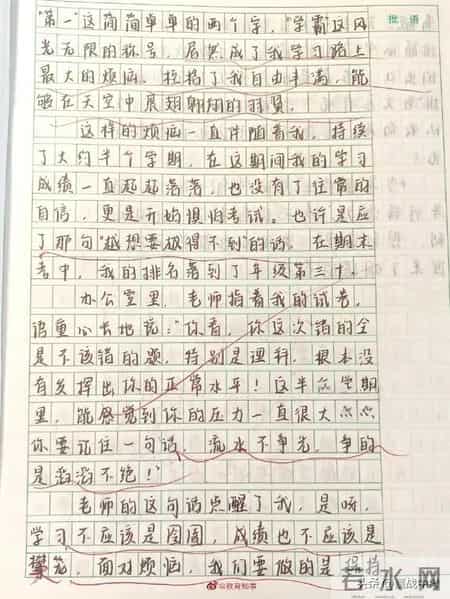 批语
“第一”这简简单单的两个字，“学霸”这风
光无限的称号，居然成了我学习路上
最大的烦恼。拴梏了我自由丰满，能
够在天空中展翅翱翔的羽翼。
这样的烦恼一直伴随着我，持续
了大约半个学期，在这期间我的学习
成绩一直起起落落，也没有了往常的
自信，更是开始惧怕考试。也许是应
了那句“越想要越得不到”的话，在期末
考中，我的排名落到了年级第三十。
办公室里，老师指着我的试卷，
语重心长地说：“你看，你这次错的全
是不该错的题，特别是理科，根本没
有发挥出你的正常水平！这半个学期
里，能感觉到你的压力一直很大……
你要记住一句话，流水不争先，争的
是滔滔不绝！”
老师的这句话点醒了我，是呀，
学习不应该是囹圄，成绩也不应该是
樊笼，面对烦恼，我们要做的是保持
@教育知事
头条
名水网